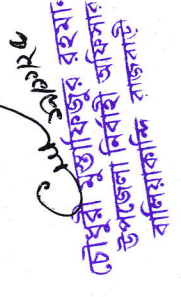 চৌধুরী মুস্তাফিজুর রহমান
উপজেলা নির্বাহী অফিসার
বালিয়াকান্দি রাজবাড়ী